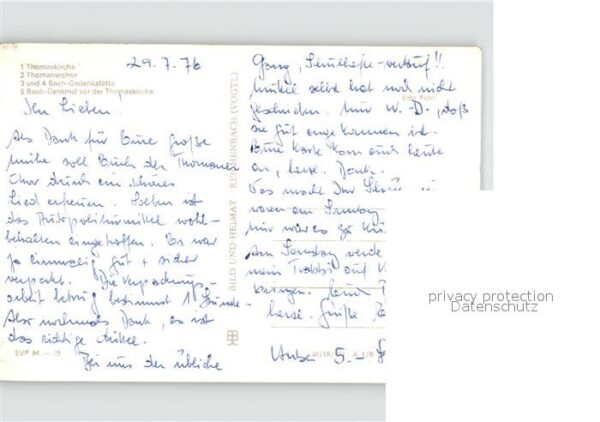 1 Thomaskirche
2 Thomanerchor
3 und 4 Bach-Gedenkstätte
5 Bach-Denkmal vor der Thomaskirche
29.7.76
Ihr Lieben!
Als Dank für Eure große
Mühe soll Euch der Thomaner
Chor durch ein schönes
Lied erfreuen. Soeben ist
das Autopoliturmittel wohl-
behalten eingetroffen. Es war
ja einmalig gut + sicher
verpackt. Die Verpackungs-
arbeit betrug bestimmt 1 Stunde.
Also nochmals Dank, es ist
das richtige Mittel.
EVP M
Bei uns der übliche
BILD UND HEIMAT REICHENBACH (VOGTL)
Gang,
selbst hat noch nicht
geschrieben. Nur W.-D., daß
sie gut angekommen ist.
Eure Karte kam auch heute
an, herzl. Dank.
Was macht Ihr
waren am Sonntag
mir war es zu
Am Sonntag werde
mein Trabbi auf
bringen. Euch
herzl. Grüße
5. -
A 1/B
privacy protection
Datenschutz